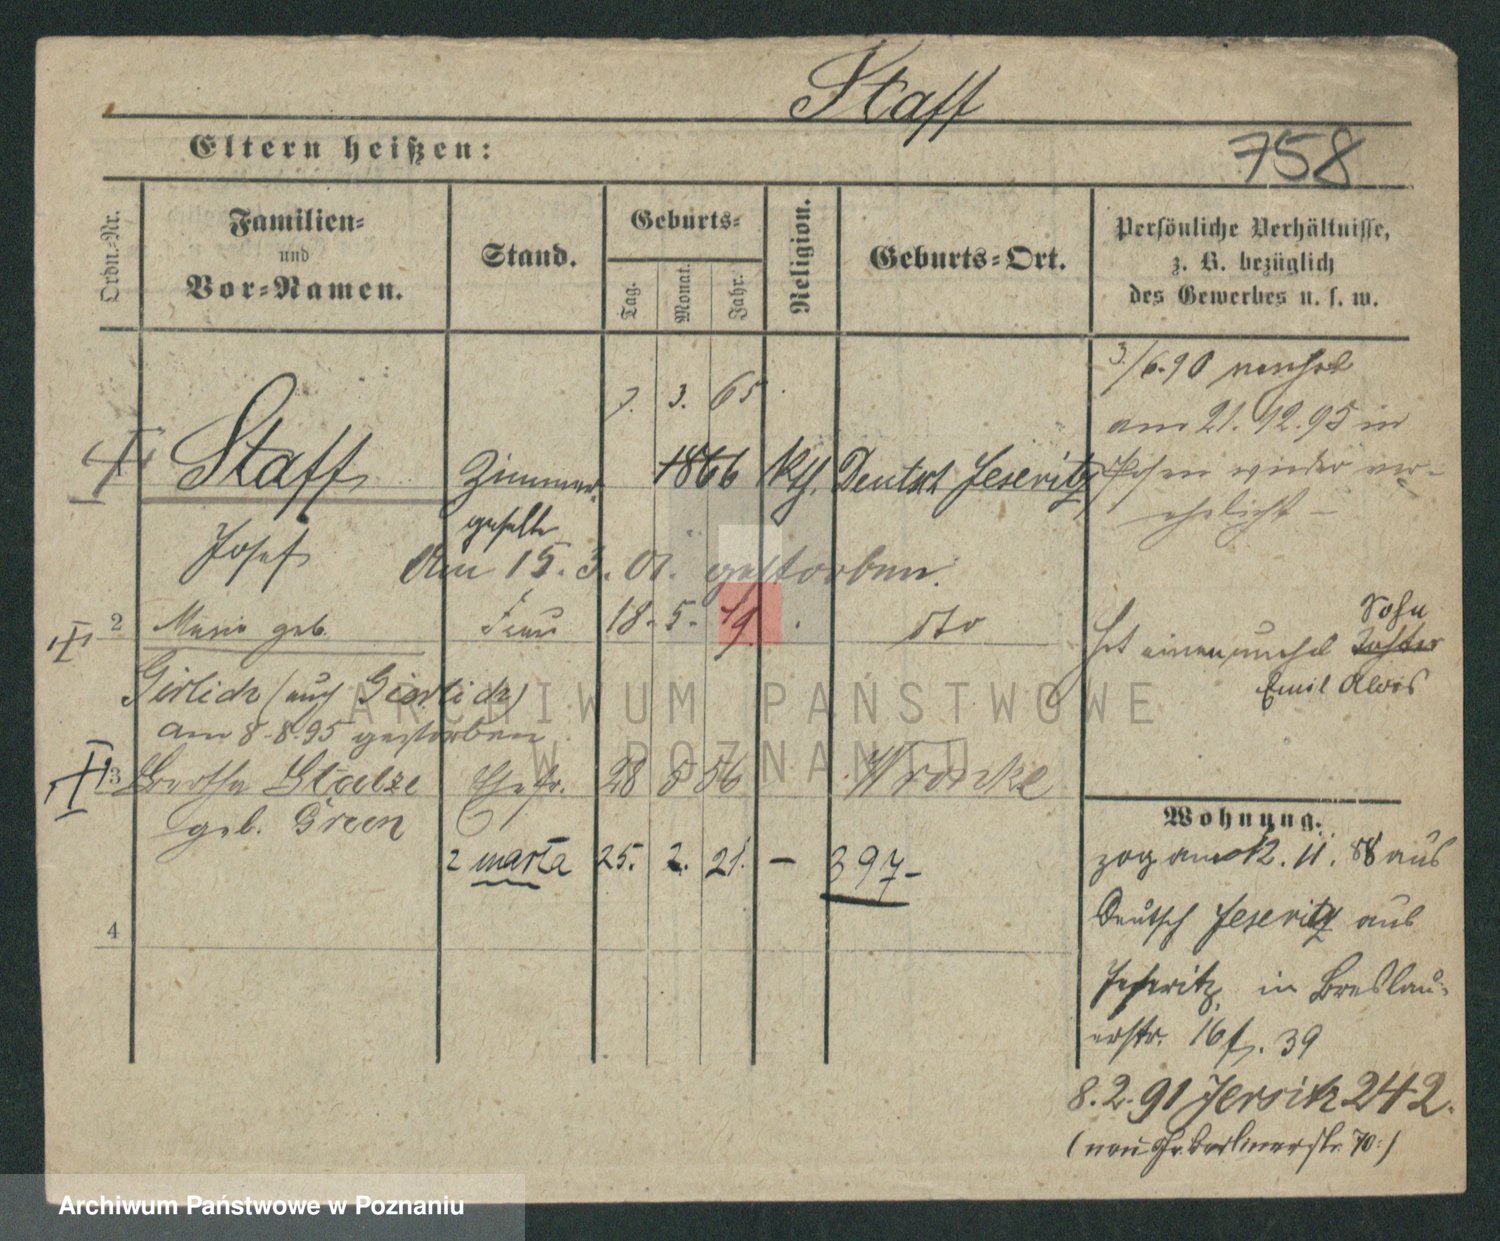 Staff
Eltern heißen:
758
Ordn.-Nr.
Familien-
und
Vor-Namen.
Stand.
Geburts-
Tag.
Monat.
Jahr.
Religion.
Geburts-Ort.
Persönliche Verhältnisse,
z. B. bezüglich
des Gewerbes u. s. w.
7. 3. 65
3/6.90 verehel
am 21.12.95 in
Staff Zimmer- 1866 kth. Deutsch Jeseritz Posen wieder ver-
geselle ehelicht –
Josef Am 15.3.01. gestorben.
2 Marie geb. Frau 18. 5. dto
Girlich (auch Gierlich)
am 8.8.95 gestorben
Hat einen unehel Sohn Tochter
Emil Alois
3 Bertha geb. Green Ehefr. 28 5 56 Wronke
2 Marta 25. 2. 21. – 397–
4
Wohnung.
zog am 12. 11. 88 aus
Deutsch Jeseritz aus
Jeseritz, in Breslau-
erstr. 16 39
8.2.91 Jersitz 242.
(neu Gr. Berlinerstr. 70.)
ARCHIWUM PAŃSTWOWE
W POZNANIU
Archiwum Państwowe w Poznaniu